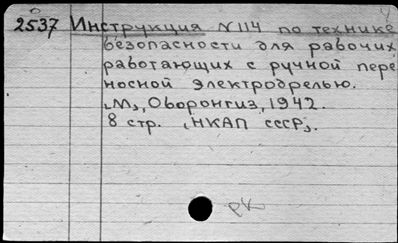 2537 Инструкция №114 по технике
безопасности для рабочих
работающих с ручной пере
носной электродрелью.
[М], Оборонгиз, 1942.
8 стр. [НКАП СССР].
РК